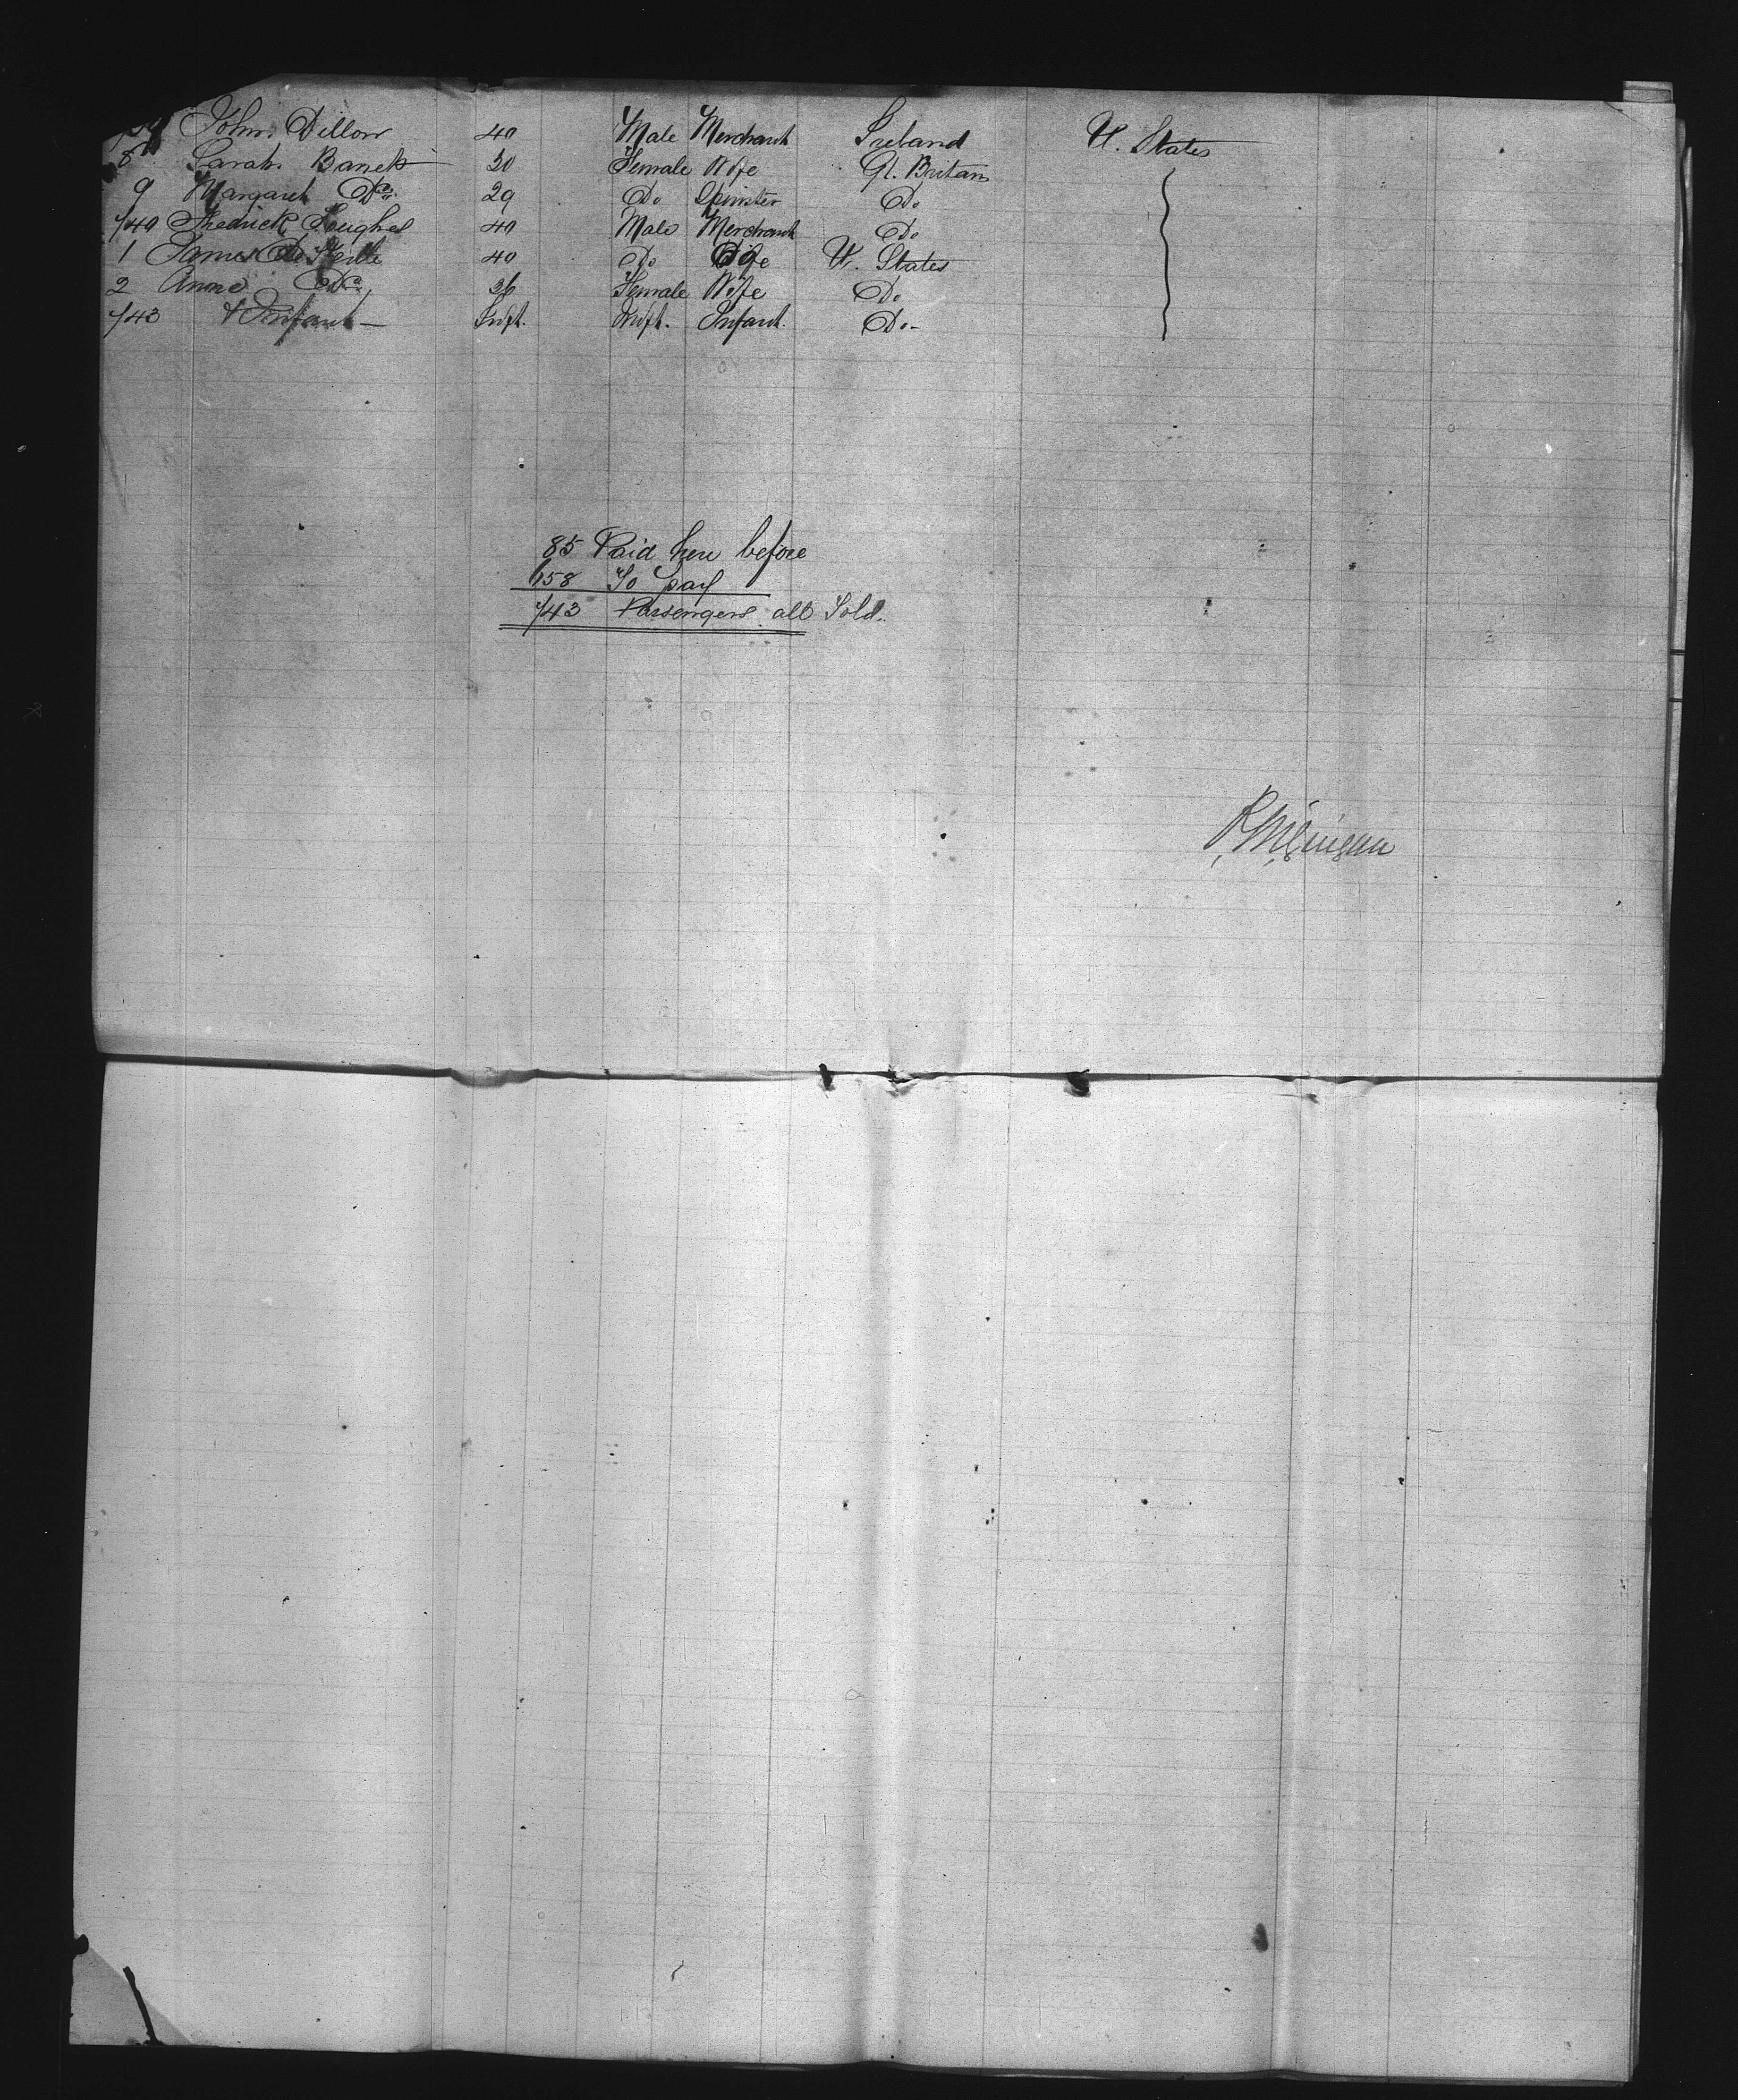 John Dillon 40 Male Merchant Ireland U. States
8 Sarah Banek 30 Female Wife Gt. Britain
9 Margaret Do 29 Do Spinster Do
740 Fredrick Loughel 40 Male Merchant Do
1 James 40 Do U. States
2 Anne Do 36 Female Wife Do
743 & Infant Inft. Inft. Infant. Do
85 Paid here before
658 To pay
743 Passengers all Told.